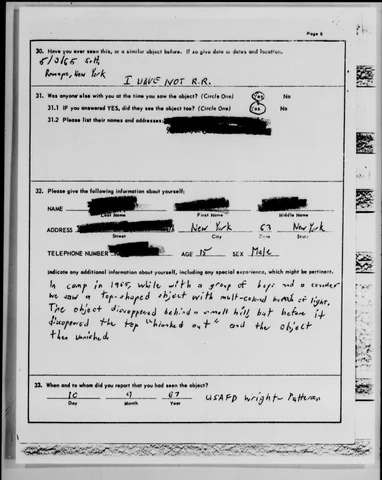 Page 6
30. Have you ever seen this, or a similar object before. If so give date or dates and location.
Ramapo, New York I HAVE NOT R.R.
31. Was anyone else with you at the time you saw the object? (Circle One) Yes No
31.1 IF you answered YES, did they see the object too? (Circle One) Yes No
31.2 Please list their names and addresses:
32. Please give the following information about yourself:
NAME
Last Name First Name Middle Name
ADDRESS New York 63 New York
Street City Zone State
TELEPHONE NUMBER AGE 15 SEX Male
Indicate any additional information about yourself, including any special experience, which might be pertinent.
In camp in 1965, while with a group of boys and a
we saw a top-shaped object with beams of light.
The object disappeared behind a small hill, but before it
disappeared the top "blanked out" and the object
then vanished.
33. When and to whom did you report that you had seen the object?
10 9 67 Wright-Patterson
Day Month Year